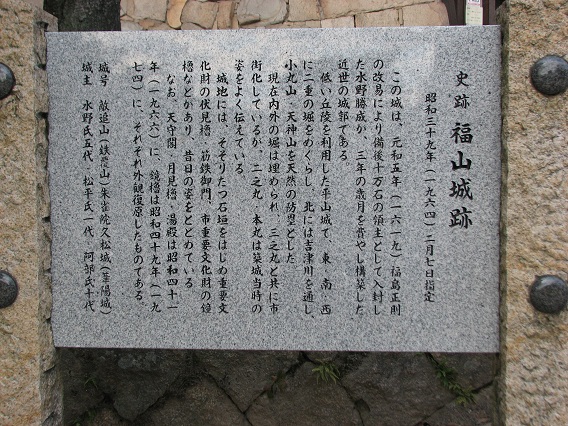 史跡 福山城跡
昭和三十九年(一九六四)二月七日指定
この城は、元和五年(一六一九)福島正則
の改易により備後十万石の領主として入封し
た水野勝成が、三年の歳月を費やし構築した
近世の城郭である。
低い丘陵を利用した平山城で、東・南・西
に二重の堀をめぐらし、北には吉津川を通し
小丸山・天神山を天然の防塁とした。
現在内外の堀は埋められ、三之丸と共に市
街化しているが、二之丸、本丸は築城当時の
姿をよく伝えている。
城地には、そそりたつ石垣をはじめ重要文
化財の伏見櫓、筋鉄御門、市重要文化財の鐘
櫓などがあり、昔日の姿をとどめている。
なお、天守閣・月見櫓・湯殿は昭和四十一
年(一九六六)に、鏡櫓は昭和四十九年(一九
七四)に、それぞれ外観復原したものである。
城号 敵追山(鉄覆山)朱雀院久松城(葦陽城)
城主 水野氏五代 松平氏一代 阿部氏十代